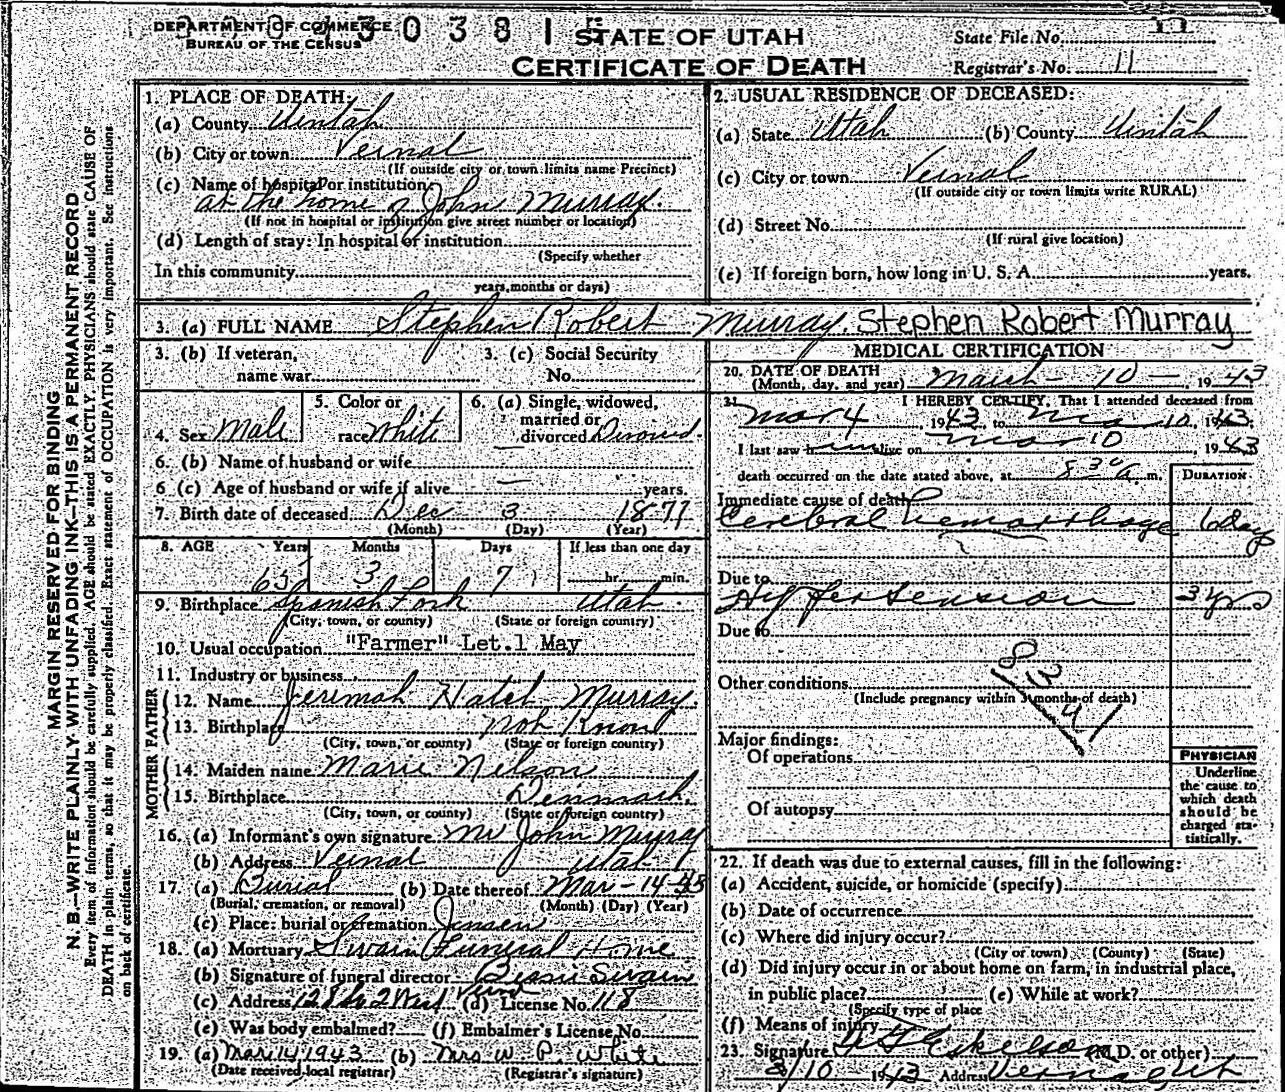 DEPARTMENT OF COMMERCE
BUREAU OF THE CENSUS
30381
STATE OF UTAH
CERTIFICATE OF DEATH
State File No.
Registrar's No. 11
MARGIN RESERVED FOR BINDING
N. B.—WRITE PLAINLY WITH UNFADING INK—THIS IS A PERMANENT RECORD
Every item of information should be carefully supplied. AGE should be stated EXACTLY. PHYSICIANS should state CAUSE OF
DEATH in plain terms, so that it may be properly classified. Exact statement of OCCUPATION is very important. See instructions
on back of certificate.
1. PLACE OF DEATH:
(a) County Uintah
(b) City or town Vernal
(If outside city or town limits name Precinct)
(c) Name of hospital or institution:
at the home of John Murray.
(If not in hospital or institution give street number or location)
(d) Length of stay: In hospital or institution
(Specify whether
In this community
years, months or days)
2. USUAL RESIDENCE OF DECEASED:
(a) State Utah (b) County Uintah
(c) City or town Vernal
(If outside city or town limits write RURAL)
(d) Street No.
(If rural give location)
(e) If foreign born, how long in U. S. A. years.
3. (a) FULL NAME Stephen Robert Murray. Stephen Robert Murray
3. (b) If veteran,
name war
3. (c) Social Security
No.
4. Sex Male
5. Color or
race White
6. (a) Single, widowed,
married or
divorced Divorced
6. (b) Name of husband or wife —
6 (c) Age of husband or wife if alive — years.
7. Birth date of deceased Dec 3 1877
(Month) (Day) (Year)
8. AGE Years Months Days If less than one day
65 3 7 hr. min.
9. Birthplace Spanish Fork Utah
(City, town, or county) (State or foreign country)
10. Usual occupation "Farmer" Let. 1 May
11. Industry or business
FATHER
12. Name Jerimah Hatch Murray
13. Birthplace not Knond
(City, town, or county) (State or foreign country)
MOTHER
14. Maiden name Marie Nelson
15. Birthplace Denmark.
(City, town, or county) (State or foreign country)
16. (a) Informant's own signature John Murray
(b) Address Vernal Utah
17. (a) Burial (b) Date thereof Mar-14-43
(Burial, cremation, or removal) (Month) (Day) (Year)
(c) Place: burial or cremation Jensen
18. (a) Mortuary Swain Funeral Home
(b) Signature of funeral director Swain
(c) Address 2 West (d) License No. 118
(e) Was body embalmed? (f) Embalmer's License No.
19. (a) Mar 14, 1943 (b) Mrs W. P. White
(Date received local registrar) (Registrar's signature)
MEDICAL CERTIFICATION
20. DATE OF DEATH
(Month, day, and year) March - 10 - , 1943
21. I HEREBY CERTIFY, That I attended deceased from
Mar 4, 1943, to Mar 10, 1943.
I last saw him alive on Mar 10, 1943
death occurred on the date stated above, at 8 30 a. m.
DURATION
Immediate cause of death
Cerebral hemorrhage 6 day
Due to
Hypertension 3 yrs
Due to
83
Other conditions
(Include pregnancy within 3 months of death)
Major findings:
Of operations
Of autopsy
PHYSICIAN
Underline
the cause to
which death
should be
charged sta-
tistically.
22. If death was due to external causes, fill in the following:
(a) Accident, suicide, or homicide (specify)
(b) Date of occurrence
(c) Where did injury occur?
(City or town) (County) (State)
(d) Did injury occur in or about home on farm, in industrial place,
in public place? (e) While at work?
(Specify type of place
(f) Means of injury
23. Signature Eskelson (M.D. or other)
3/10 1943 Address Vernal Ut